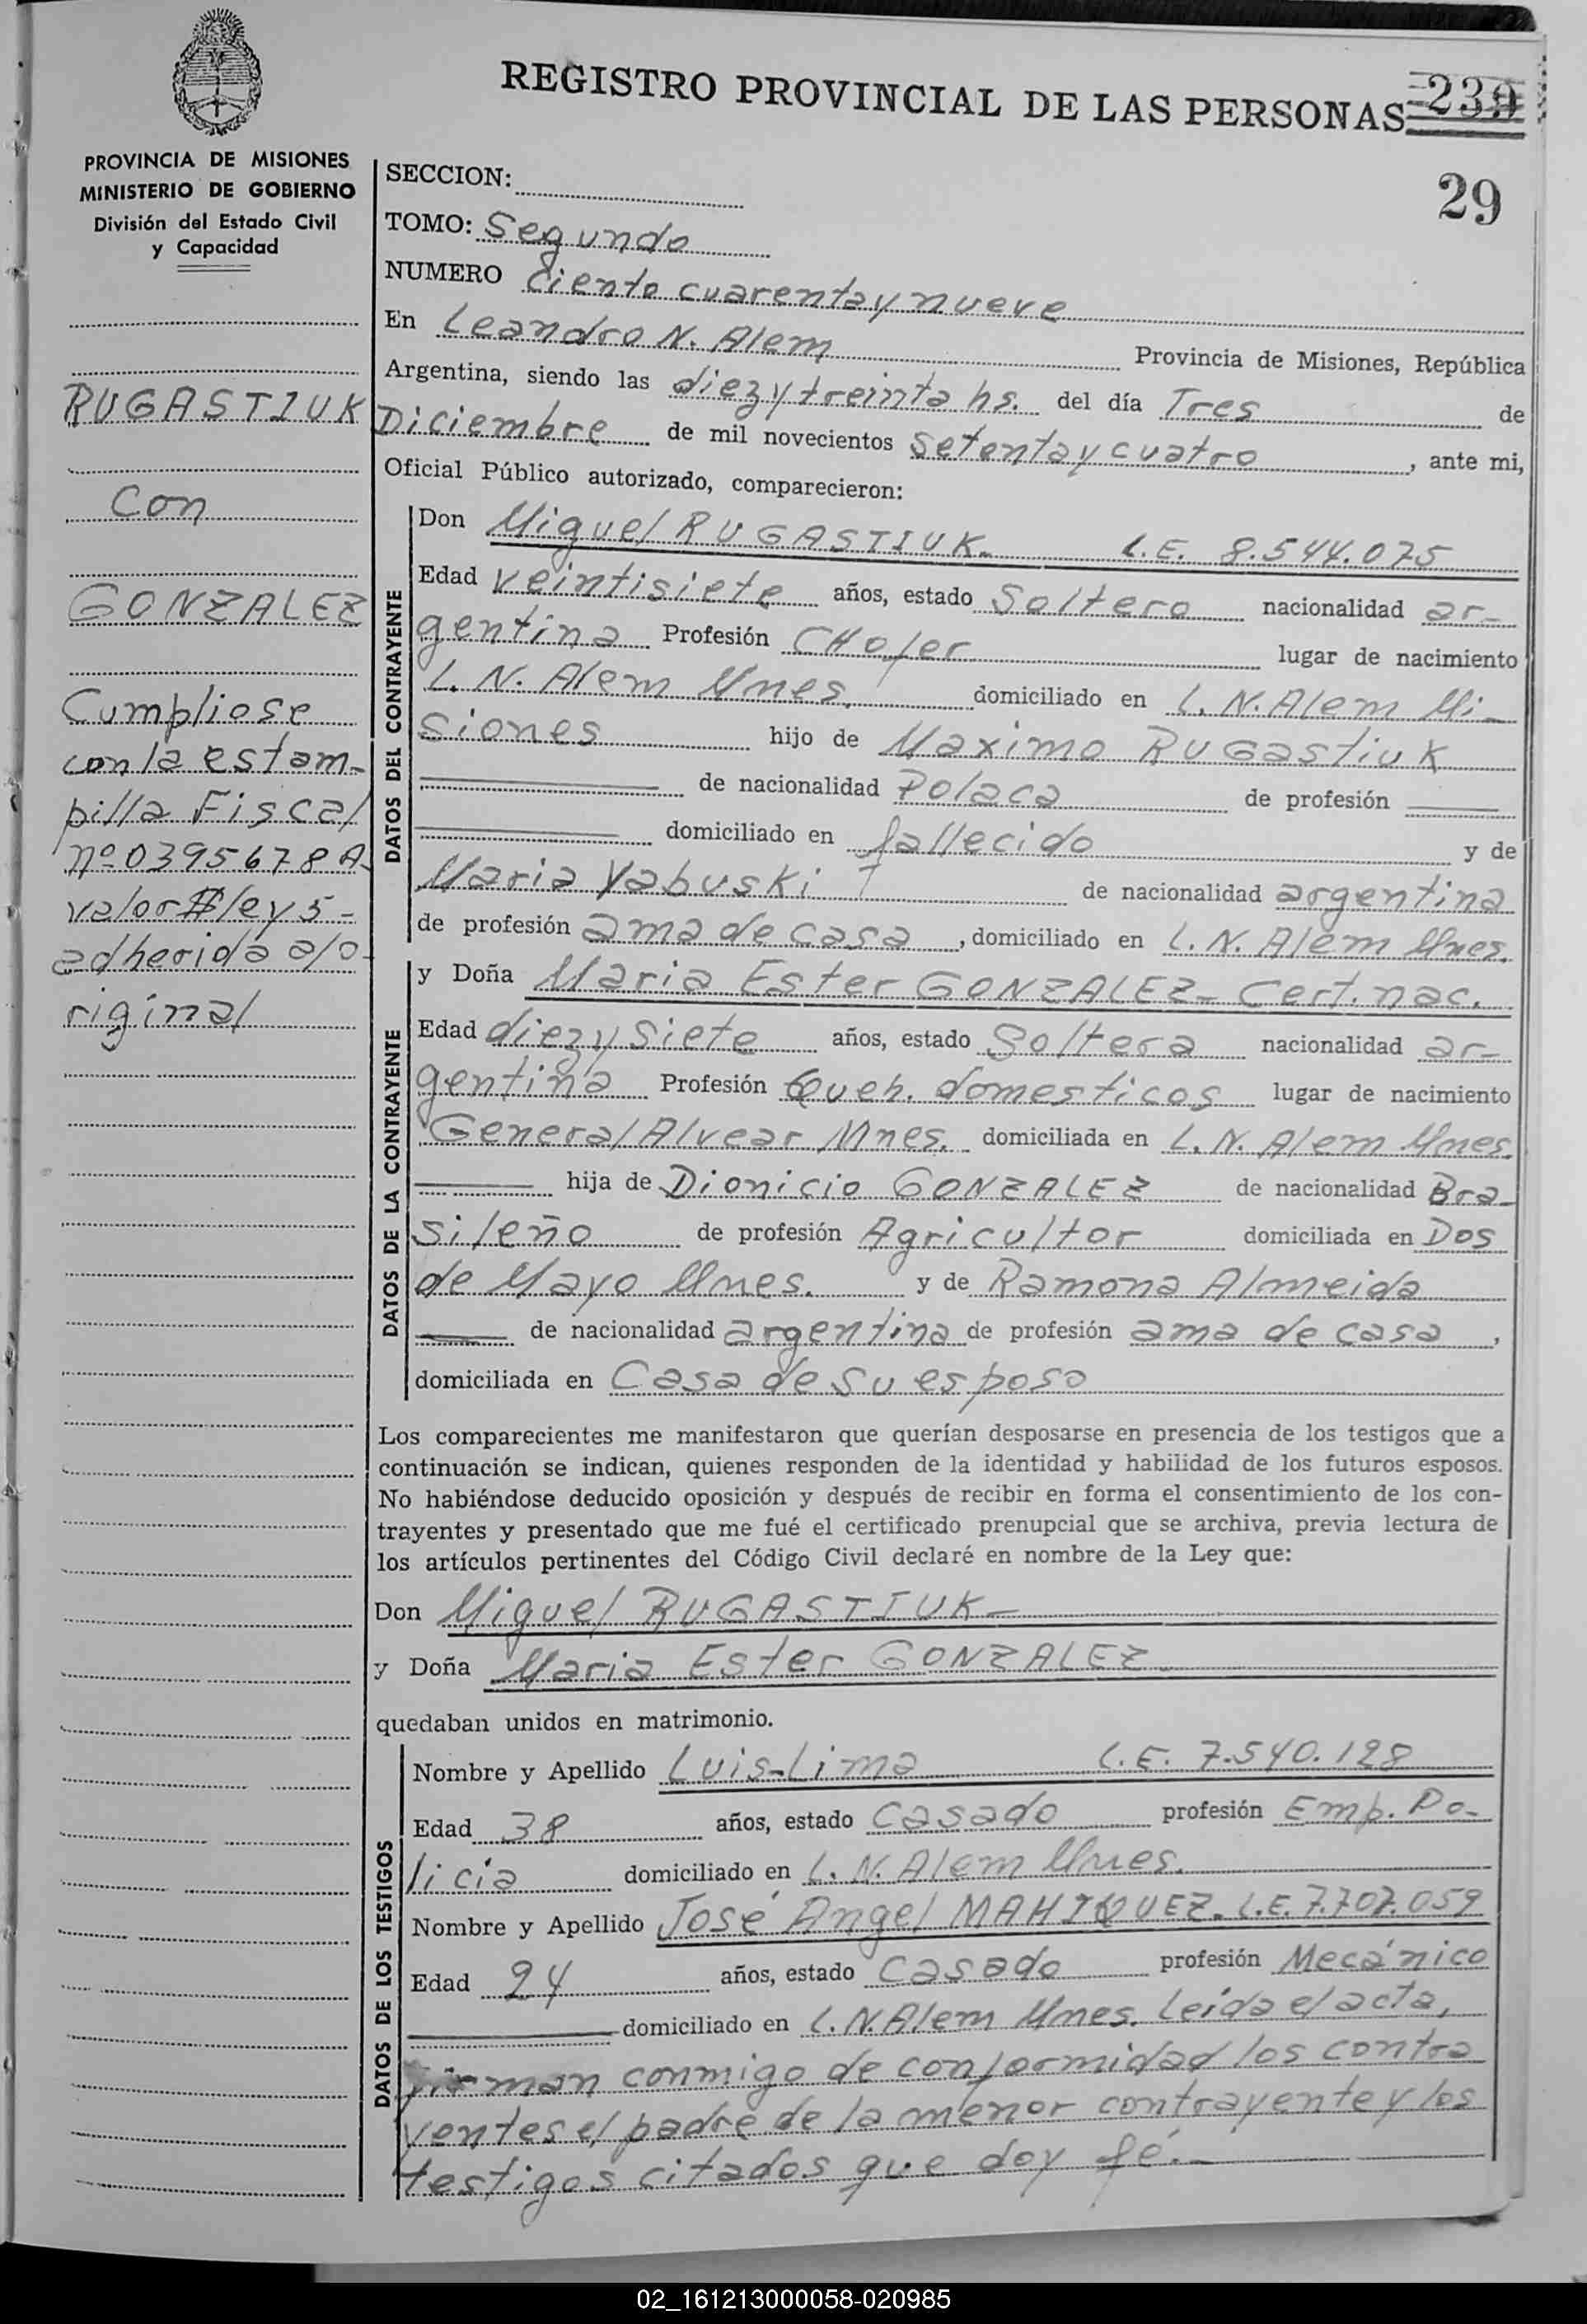 REGISTRO PROVINCIAL DE LAS PERSONAS 239
29
PROVINCIA DE MISIONES
MINISTERIO DE GOBIERNO
División del Estado Civil
y Capacidad
RUGASTIUK
Con
GONZALEZ
Cumpliose
con la estam-
pilla Fiscal
nº 0395678A-
valor $ ley 5-
adherida a/o-
riginal
SECCION:
TOMO: Segundo
NUMERO Ciento cuarenta y nueve
En Leandro N. Alem Provincia de Misiones, República
Argentina, siendo las diez y treinta hs. del día Tres de
Diciembre de mil novecientos setenta y cuatro, ante mi,
Oficial Público autorizado, comparecieron:
DATOS DEL CONTRAYENTE
Don Miguel RUGASTIUK. L.E. 8.544.075
Edad veintisiete años, estado Soltero nacionalidad ar-
gentina Profesión CHofer lugar de nacimiento
L. N. Alem Mnes. domiciliado en L. N. Alem Mi-
siones hijo de Maximo RUGastiuK
de nacionalidad Polaca de profesión
domiciliado en fallecido y de
Maria Yabuski de nacionalidad argentina
de profesión ama de casa, domiciliado en L. N. Alem Mnes.
DATOS DE LA CONTRAYENTE
y Doña Maria Ester GONZALEZ- Cert. nac.
Edad diez y siete años, estado Soltera nacionalidad ar-
gentina Profesión Queh. domesticos lugar de nacimiento
General Alvear Mnes. domiciliada en L. N. Alem Mnes.
hija de Dionicio GONZALEZ de nacionalidad Bra-
sileño de profesión Agricultor domiciliada en Dos
de Mayo Mnes. y de Ramona Almeida
de nacionalidad argentina de profesión ama de casa,
domiciliada en Casa de su esposo
Los comparecientes me manifestaron que querían desposarse en presencia de los testigos que a
continuación se indican, quienes responden de la identidad y habilidad de los futuros esposos.
No habiéndose deducido oposición y después de recibir en forma el consentimiento de los con-
trayentes y presentado que me fué el certificado prenupcial que se archiva, previa lectura de
los artículos pertinentes del Código Civil declaré en nombre de la Ley que:
Don Miguel RUGASTIUK-
y Doña Maria Ester GONZALEZ
quedaban unidos en matrimonio.
DATOS DE LOS TESTIGOS
Nombre y Apellido Luis-Lima L.E. 7.540.128
Edad 38 años, estado Casado profesión Emp. Po-
licia domiciliado en L. N. Alem Mnes.
Nombre y Apellido José Angel MAHIQUEZ. L.E. 7.707.059
Edad 24 años, estado Casado profesión Mecánico
domiciliado en L. N. Alem Mnes. Leida el acta,
firman conmigo de conformidad los contra
yentes el padre de la menor contrayente y los
testigos citados que doy fé.-
02_161213000058-020985